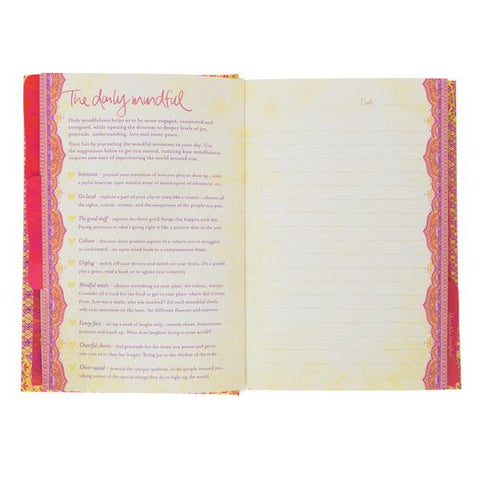 The daily mindful
Daily mindfulness helps us to be more engaged, connected and
energised, while opening the doorway to deeper levels of joy,
gratitude, understanding, love and inner peace.
Have fun by journaling the mindful moments in your day. Use
the suggestions below to get you started, noticing how mindfulness
inspires new ways of experiencing the world around you.
Intention - journal your intention of how you plan to show up... with
a joyful heart an open mind a sense of
Go local - explore a part of your city or town like a tourist... observe all
the sights, sounds, aromas, and the uniqueness of the people you pass.
The good stuff - capture the three good things that happen each day.
Paying attention to what's going right is like a positive shot in the arm.
Culture - discover three positive aspects of a culture you've struggled
to understand... an open mind leads to a compassionate heart.
Unplug - switch off your devices and switch on your brain. Do a puzzle,
play a game, read a book or re-ignite your creativity.
Mindful meals - observe everything on your plate, the colour,
Consider all it took for the food to get to your plate, where did it come
from, how was it made, who was involved? Eat each mouthful slowly
with your attention on the taste, the different flavours and textures.
Funny fast - set up a week of laughs
podcasts and stand up. What does laughter bring to your world?
Cheerful chores - feel gratitude for the items you possess and get to
take care of so they last longer. Bring joy to the rhythm of the tasks.
Cheer squad - journal the unique qualities of the people around you,
taking notice of the special things they do to light up the world.